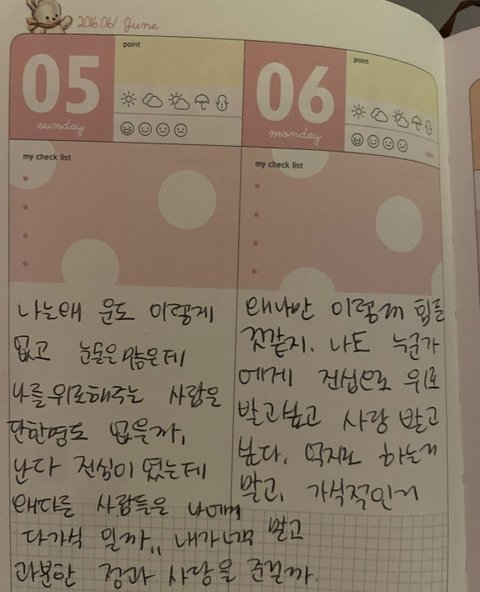 2016.06/ June
05
sunday
point
my check list
나는왜 운도 이렇게
없고 눈물은많은데
나를위로해주는 사람은
단한명도 없을까,
난다 진심이 였는데
왜다른 사람들은 나에게
다가식 일까,, 내가너무 많고
과분한 정과 사랑을 준걸까.
06
monday
point
my check list
왜나만 이렇게 힘든
것같지. 나도 누군가
에게 진심으로 위로
받고싶고 사랑 받고
싶다. 억지로 하는거
말고, 가식적인거